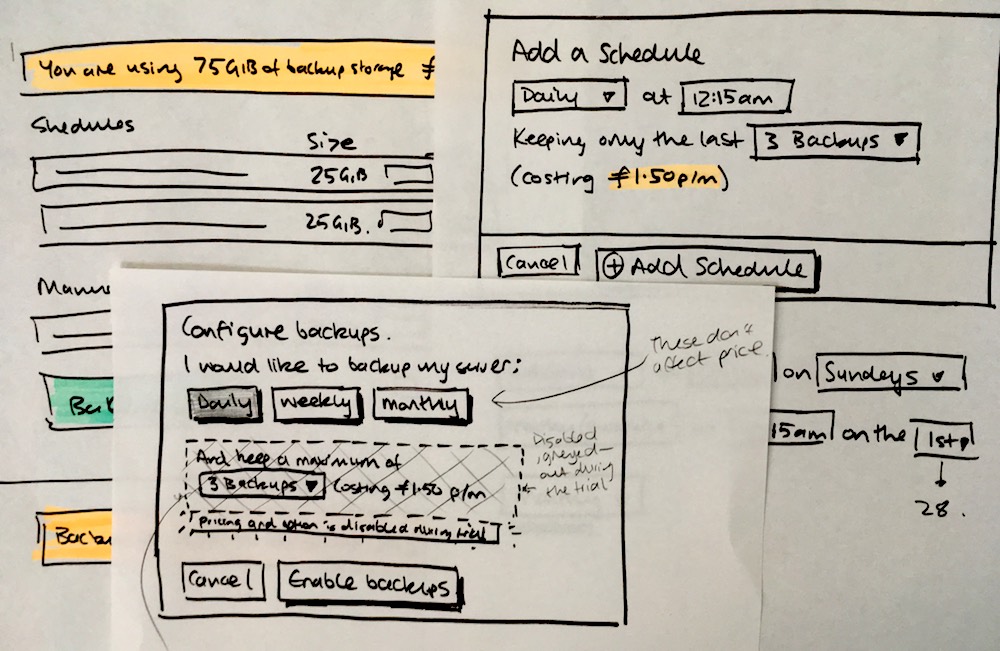 You are using 75GiB of backup storage £
Shedules
Size
25GiB
25GiB.
Add a Schedule
Daily ▼ at 12:15am
Keeping only the last 3 Backups ▼
(costing £1.50p/m)
Cancel
+ Add Schedule
on Sundays
15am on the 1st
28.
Configure backups.
I would like to backup my server:
Daily weekly monthly
These don't
affect price.
And keep a maximum of
3 Backups ▼ Costing £1.50 p/m
Pricing and option is disabled during trial
Disabled
greyed-
out during
the trial
Cancel
Enable backups